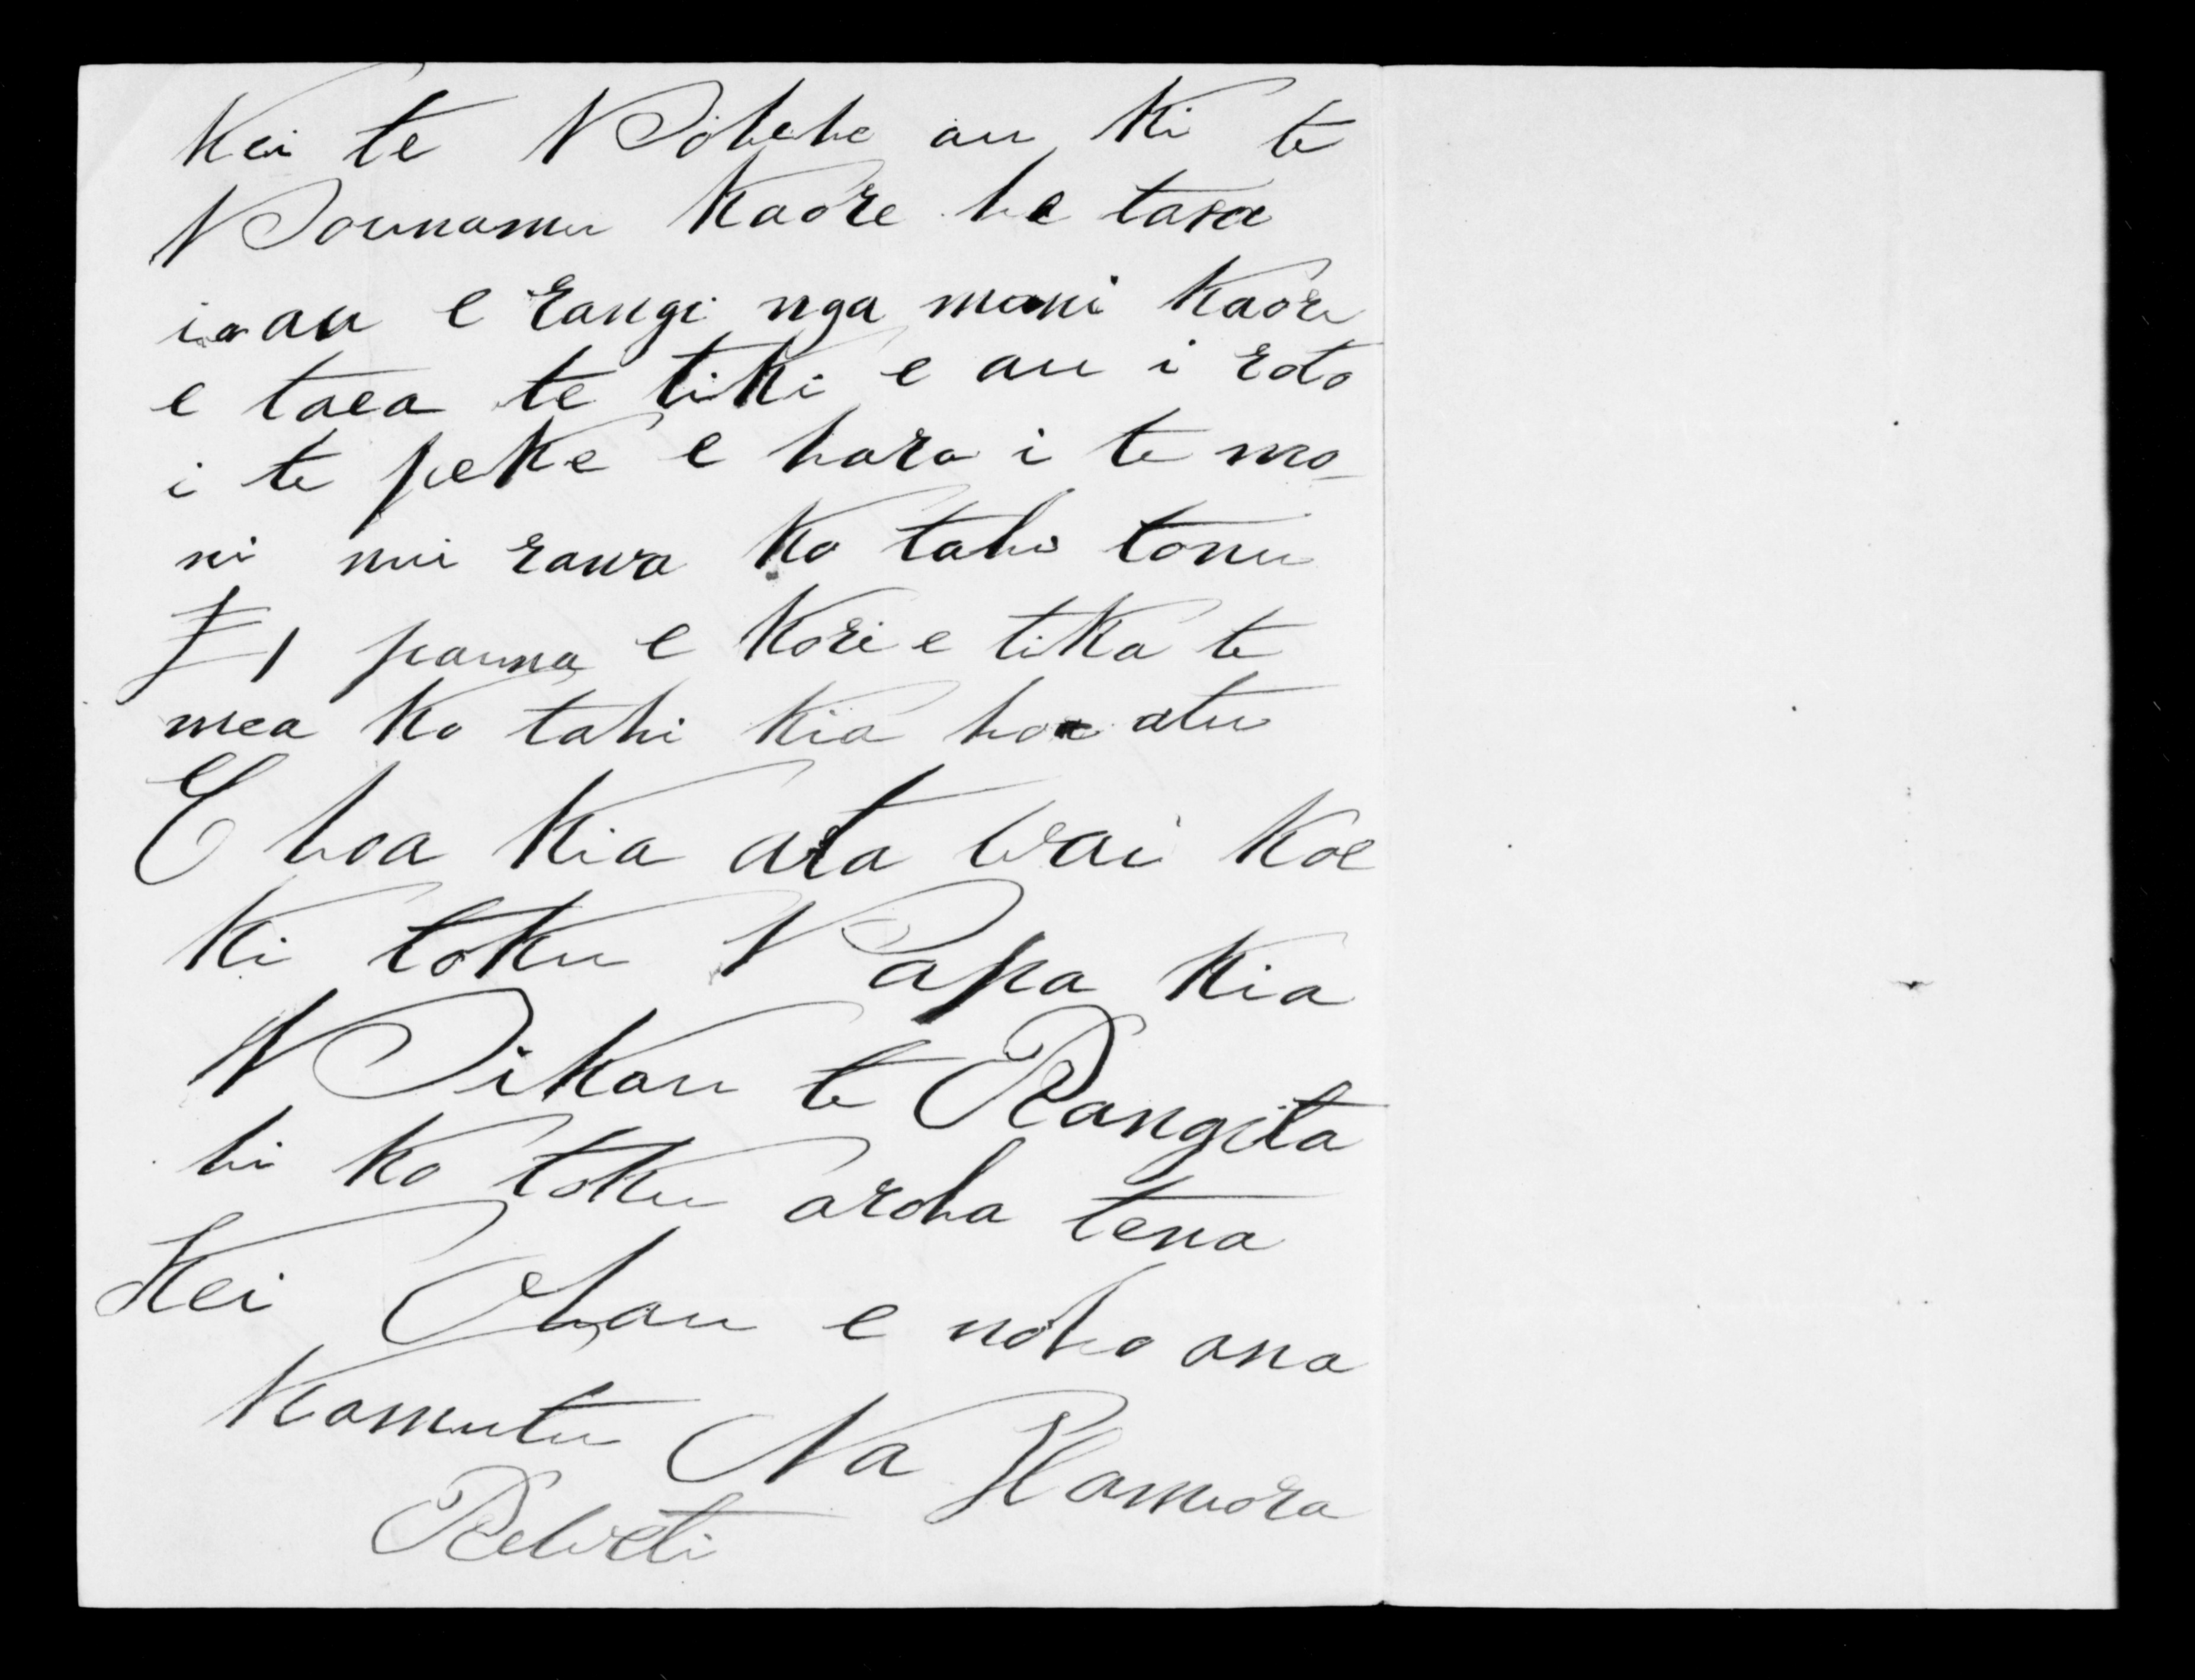 Kei te Pohehe au Ki te
Pounamu Kaore he tara
ia au e rangi nga moni Kaore
e taea te tiki e au i roto
i te peke e hara i te mo-
ni nui rawa Ko tahi tonu
£1 pauna e Kore e tika te
mea Ko tahi Kia hoe atu
E hoa Kia ata wai Koe
Ki toku Papa Kia
Pikau te Rangita
hi Ko toku aroha tena
Kei Ohau e noho ana
Kamutu Na Hamiora